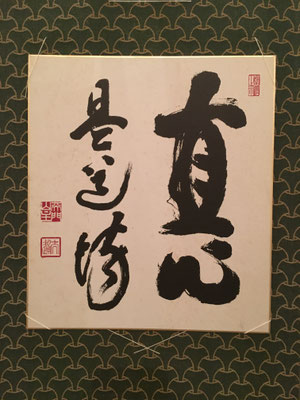 直心
是道場